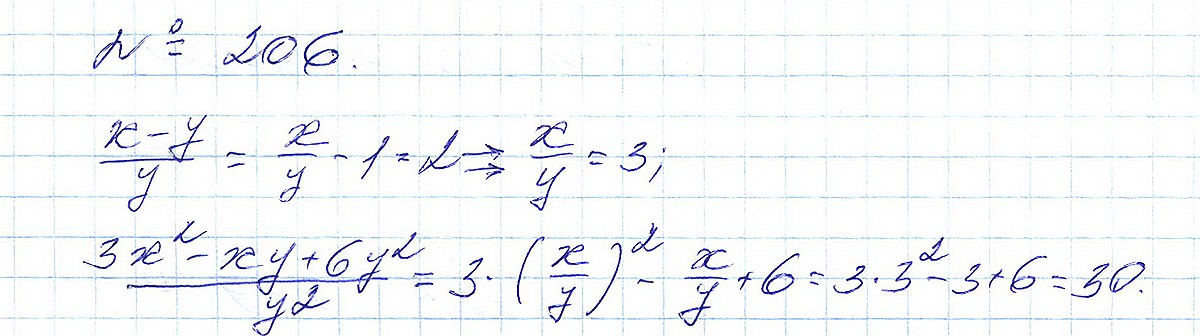 № 206.
\frac{x-y}{y} = \frac{x}{y} - 1 = 2 ⇒ \frac{x}{y} = 3;
\frac{3x^2 - xy + 6y^2}{y^2} = 3 \cdot \left(\frac{x}{y}\right)^2 - \frac{x}{y} + 6 = 3 \cdot 3^2 - 3 + 6 = 30.